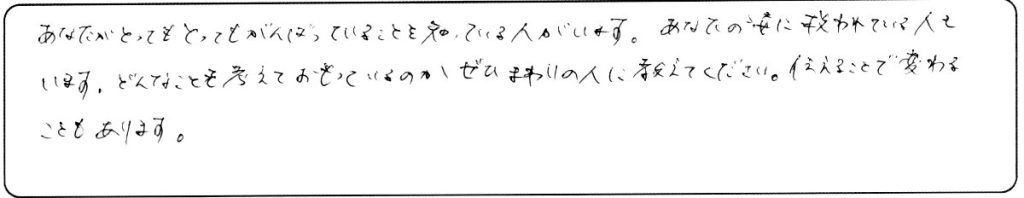 あなたがとってもとってもがんばっていることを知っている人がいます。あなたの姿に救われている人も
います。どんなことを考えておもっているのか、ぜひまわりの人に教えてください。伝えることで変わる
こともあります。